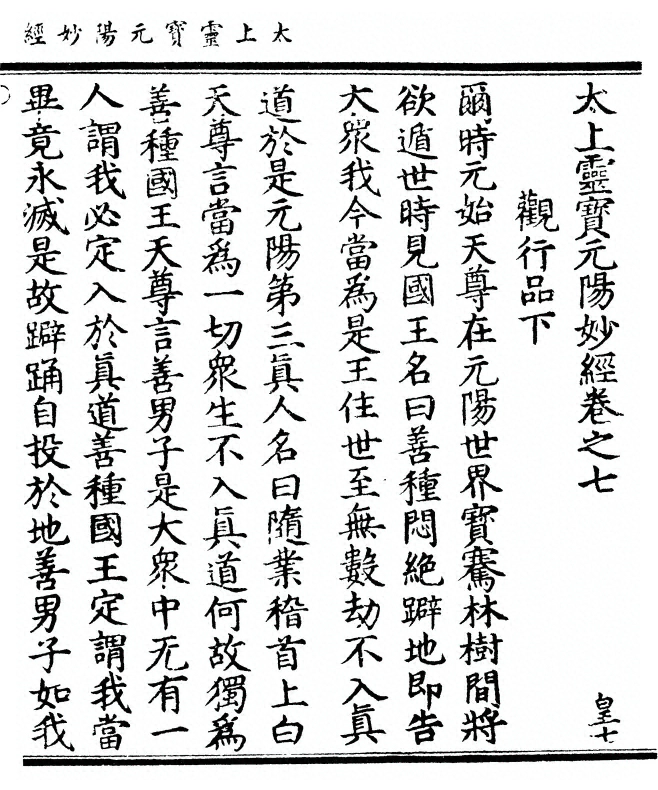 太上靈寶元陽妙經
太上靈寶元陽妙經卷之七
皇七
觀行品下
爾時元始天尊在元陽世界寶騫林樹間將
欲遁世時見國王名曰善種悶絶躃地即告
大衆我今當為是王住世至無數劫不入眞
道於是元陽第三眞人名曰隨業稽首上白
天尊言當爲一切衆生不入眞道何故獨爲
善種國王天尊言善男子是大衆中无有一
人謂我必定入於眞道善種國王定謂我當
畢竟永滅是故躃踊自投於地善男子如我